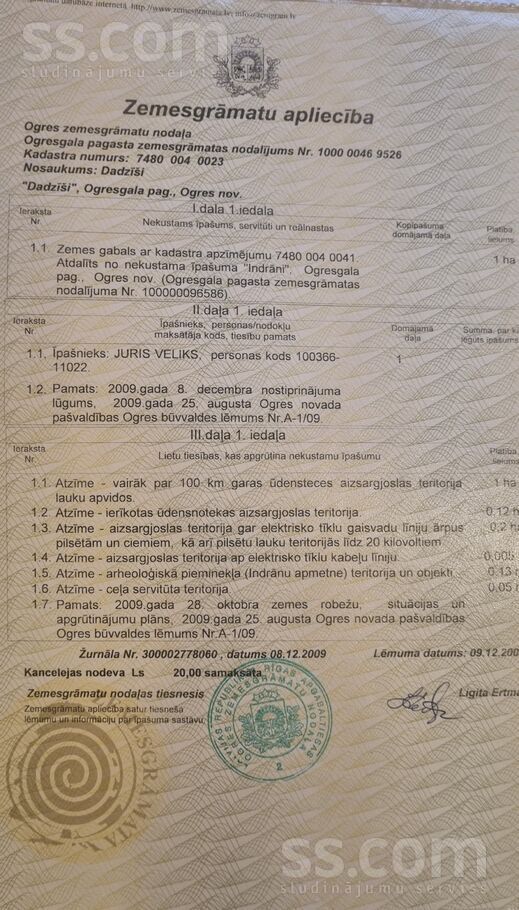 datubāze internetā http://www.zemesgramata.lv; info@zemgram.lv
ss.com
sludinājumu serviss
Zemesgrāmatu apliecība
Ogres zemesgrāmatu nodaļa
Ogresgala pagasta zemesgrāmatas nodalījums Nr. 1000 0046 9526
Kadastra numurs: 7480 004 0023
Nosaukums: Dadzīši
"Dadzīši", Ogresgala pag., Ogres nov.
I.daļa 1.iedaļa
Ieraksta Nr.
Nekustams īpašums, servitūti un reālnastas
Kopīpašuma domājamā daļa
Platība, lielums
1.1. Zemes gabals ar kadastra apzīmējumu 7480 004 0041. 1 ha
Atdalīts no nekustama īpašuma "Indrāni", Ogresgala
pag., Ogres nov. (Ogresgala pagasta zemesgrāmatas
nodalījuma Nr. 100000096586).
II.daļa 1. iedaļa
Ieraksta Nr.
Īpašnieks, personas/nodokļu
maksātāja kods, tiesību pamats
Domājamā daļa
Summa, par k
iegūts īpašum
1.1. Īpašnieks: JURIS VELIKS, personas kods 100366- 1
11022.
1.2. Pamats: 2009.gada 8. decembra nostiprinājuma
lūgums, 2009.gada 25. augusta Ogres novada
pašvaldības Ogres būvvaldes lēmums Nr.A-1/09.
III.daļa 1. iedaļa
Ieraksta Nr.
Lietu tiesības, kas apgrūtina nekustamu īpašumu
Platība, lielums
1.1. Atzīme - vairāk par 100 km garas ūdensteces aizsargjoslas teritorija 1 ha
lauku apvidos.
1.2. Atzīme - ierīkotas ūdensnotekas aizsargjoslas teritorija. 0.12 h
1.3. Atzīme - aizsargjoslas teritorija gar elektrisko tīklu gaisvadu līniju ārpus 0.2 h
pilsētām un ciemiem, kā arī pilsētu lauku teritorijās līdz 20 kilovoltiem.
1.4. Atzīme - aizsargjoslas teritorija ap elektrisko tīklu kabeļu līniju. 0.005
1.5. Atzīme - arheoloģiskā pieminekļa (Indrānu apmetne) teritorija un objekti. 0.13 h
1.6. Atzīme - ceļa servitūta teritorija. 0.05 h
1.7. Pamats: 2009.gada 28. oktobra zemes robežu, situācijas un
apgrūtinājumu plāns, 2009.gada 25. augusta Ogres novada pašvaldības
Ogres būvvaldes lēmums Nr.A-1/09.
Žurnāla Nr. 300002778060 , datums 08.12.2009 Lēmuma datums: 09.12.200
Kancelejas nodeva Ls 20,00 samaksāta.
Zemesgrāmatu nodaļas tiesnesis Ligita Ertm
Zemesgrāmatu apliecība satur tiesneša
lēmumu un informāciju par īpašuma sastāvu,
LATVIJAS REPUBLIKAS RĪGAS APGABALTIESAS
OGRES ZEMESGRĀMATU NODAĻA
2
ZEMESGRĀMATA
ss.com
sludinājumu serviss